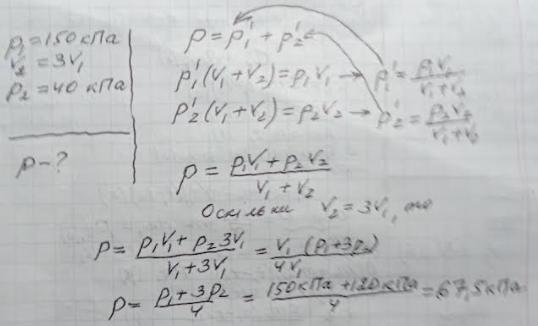 p₁ = 150 кПа
V₂ = 3V₁
p₂ = 40 кПа
p – ?
p = p₁' + p₂'
p₁'(V₁ + V₂) = p₁V₁ → p₁' = p₁V₁/(V₁ + V₂)
p₂'(V₁ + V₂) = p₂V₂ → p₂' = p₂V₂/(V₁ + V₂)
p = (p₁V₁ + p₂V₂)/(V₁ + V₂)
Оскільки V₂ = 3V₁, то
p = (p₁V₁ + p₂3V₁)/(V₁ + 3V₁) = V₁(p₁ + 3p₂)/4V₁
p = (p₁ + 3p₂)/4 = (150 кПа + 120 кПа)/4 = 67,5 кПа